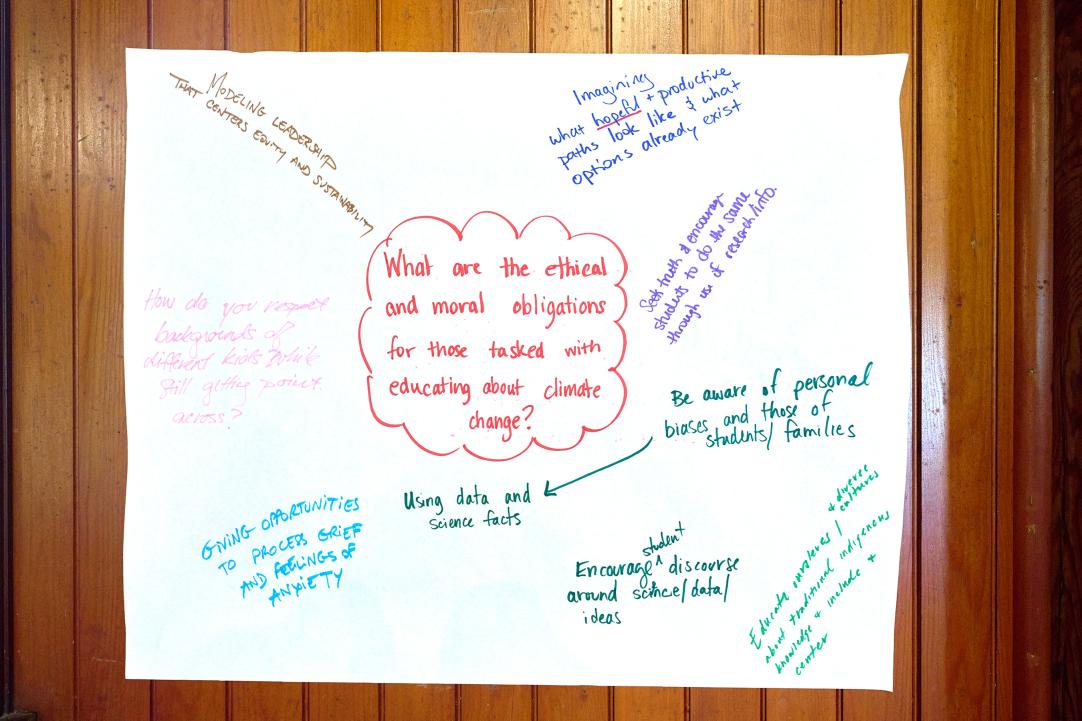 MODELING LEADERSHIP
THAT CENTERS EQUITY AND SUSTAINABILITY
Imagining
what hopeful + productive
paths look like & what
options already exist
Seek truth & encourage
students to do the same
through use of research/info.
What are the ethical
and moral obligations
for those tasked with
educating about climate
change?
How do you respect
backgrounds of
different kids while
still getting point
across?
Be aware of personal
biases and those of
students/families
Using data and
science facts
GIVING OPPORTUNITIES
TO PROCESS GRIEF
AND FEELINGS OF
ANXIETY
student
Encourage ^ discourse
around science/data/
ideas
+ diverse
cultures
Educate ourselves/
about traditional indigenous
knowledge + include +
center